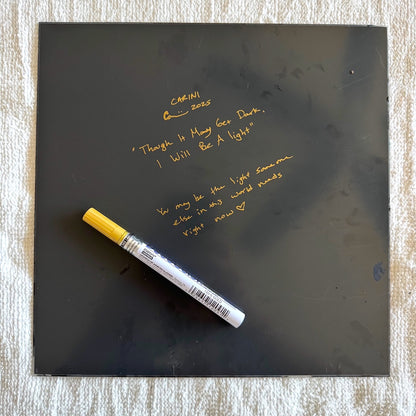 CARINI
2025
"Though It May Get Dark,
I Will Be A light"
You may be the light someone
else in this world needs
right now ♡